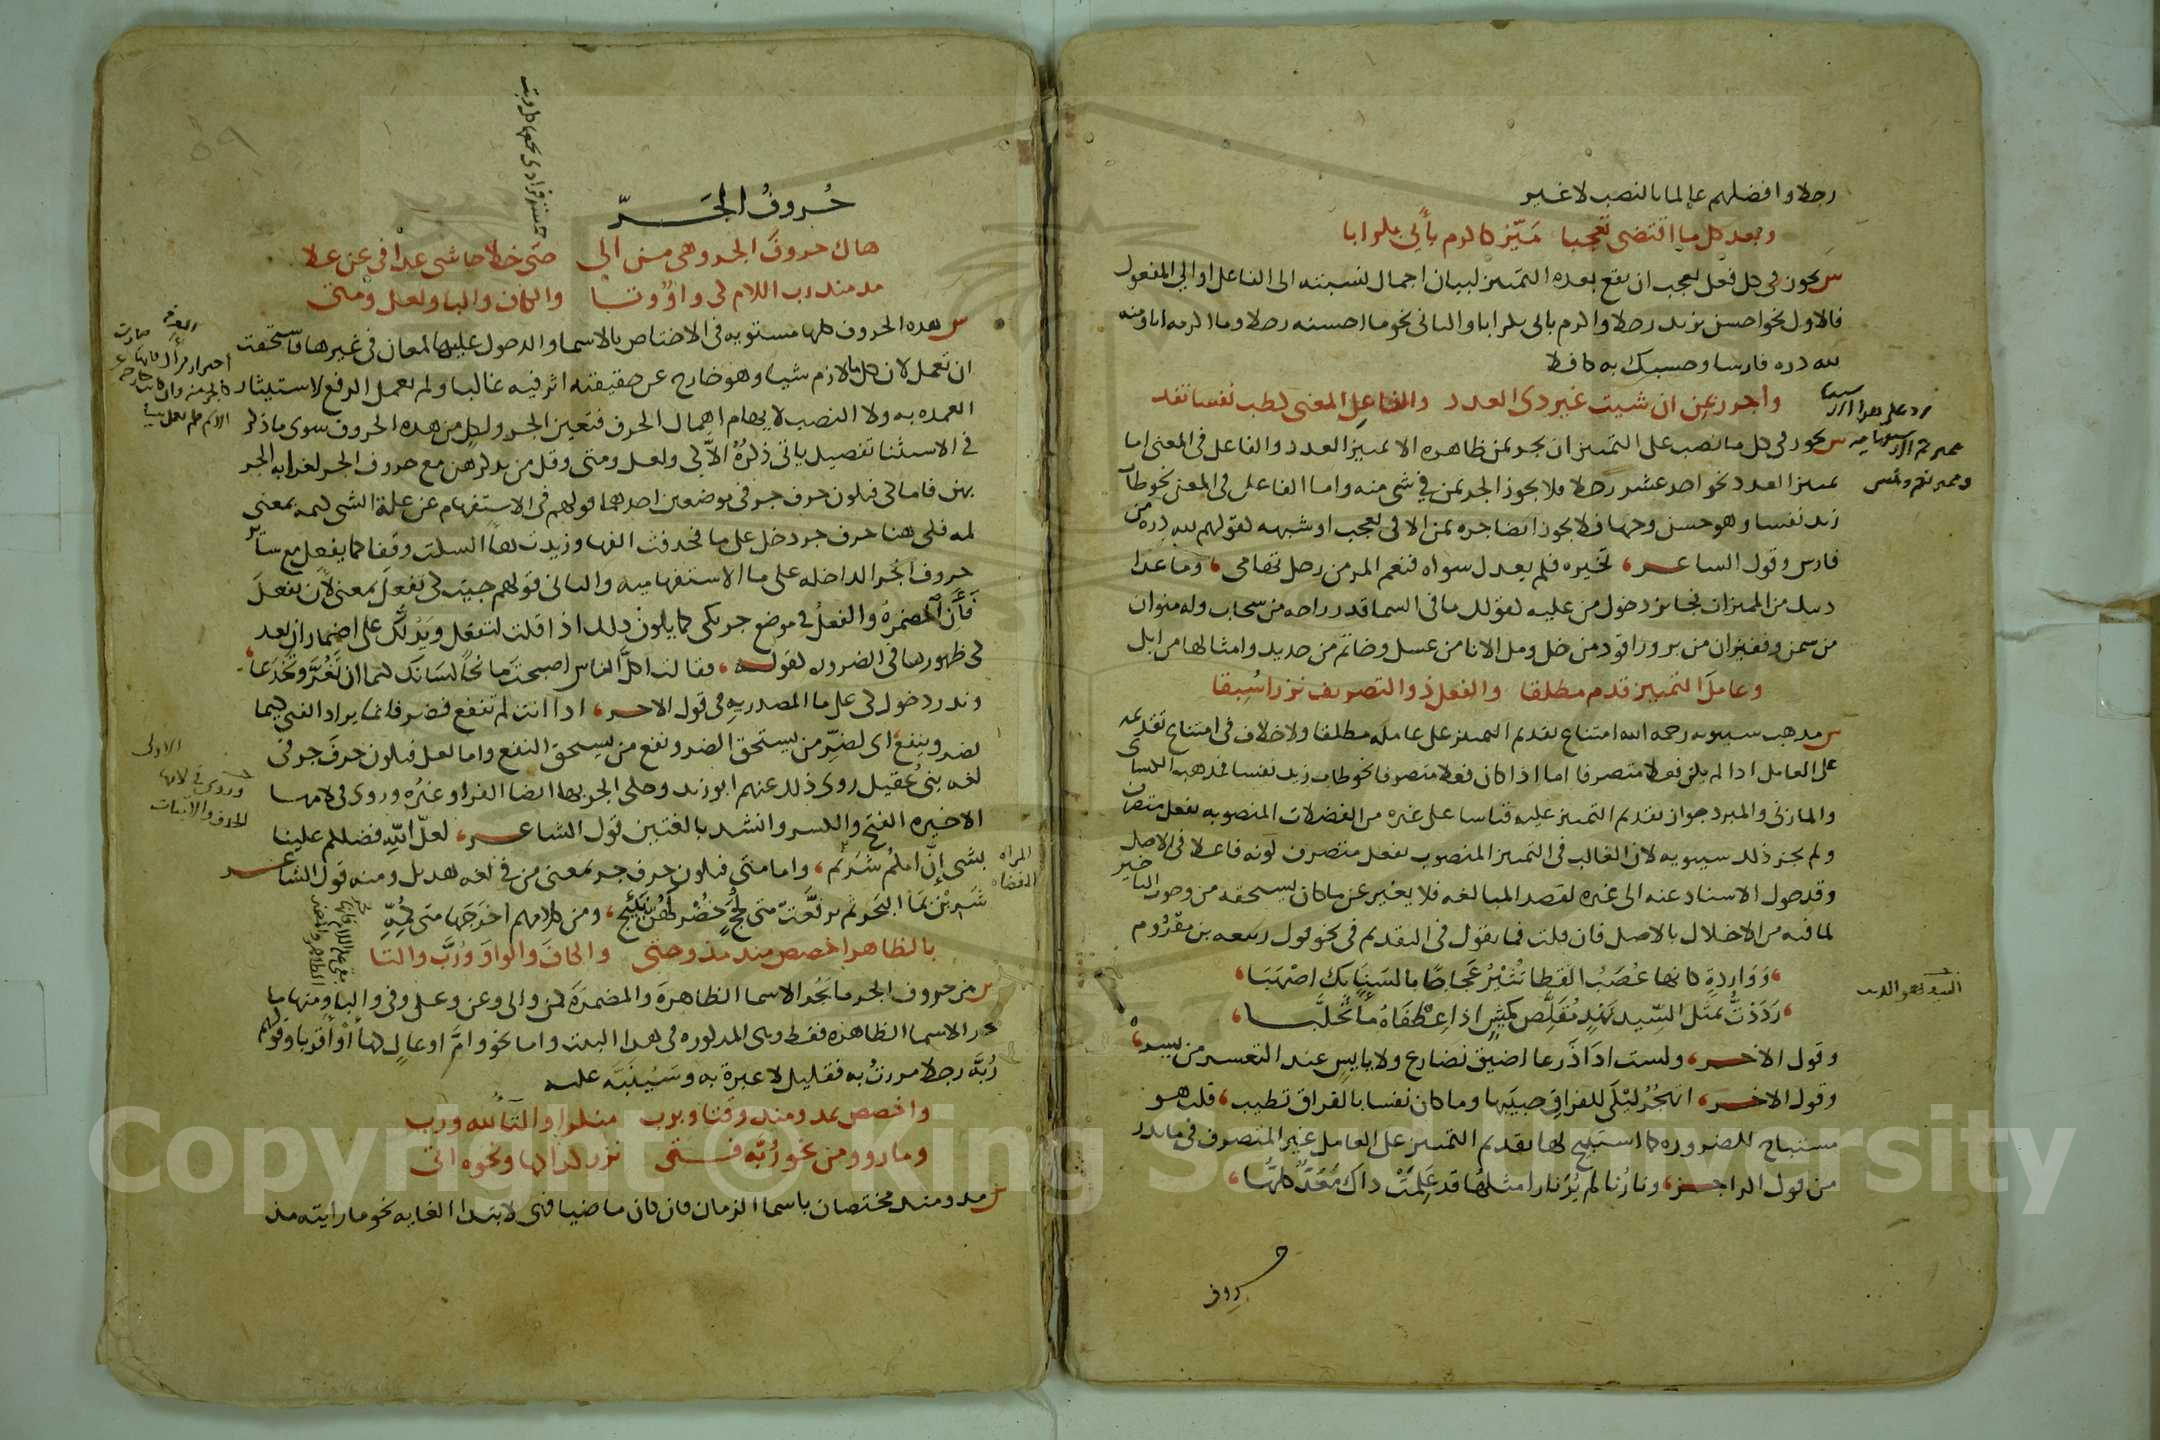 رجلا وافضلهم عالما بالنصب لا غير
وبعد كل ما اقتضى تعجبا ميّز كاكرم بأبي بكر ابا
س يجوز في كل فعل تعجب ان يقع بعده التمييز لبيان اجمال نسبته الى الفاعل او الى المفعول
فالاول نحو احسن بزيد رجلا واكرم بابي بكر ابا والثاني نحو ما احسنه رجلا وما اكرمه ابا ومنه
لله دره فارسا وحسبك به كافلا
وأجرر بمن ان شيت غير ذي العدد والفاعل المعنى كطب نفسا تفد
س يجوز في كل ما نصب على التمييز ان يجر بمن ظاهره الا تمييز العدد والفاعل في المعنى اما
تمييز العدد نحو احد عشر رجلا فلا يجوز الجر بمن في شي منه واما الفاعل في المعنى نحو طاب
زيد نفسا وهو حسن وجها فلا يجوز ايضا جره بمن الا في تعجب او شبهه كقولهم لله دره من
فارس وقول الشاعر، تخيره فلم يعدل سواه فنعم المر من رجل تهامي، وما عدا
ذينك من المميزات فجائز دخول من عليه كقولك ما في السما قدر راحه من سحاب وله منوان
من سمن وقفيزان من بر وراقود من خل ومل الانا من عسل وخاتم من حديد وامثالها من ابل
وعامل التمييز قدم مطلقا والفعل ذو التصريف نزرا سُبقا
س مذهب سيبويه رحمه الله امتناع تقديم التمييز على عامله مطلقا ولا خلاف في امتناع تقديمه
على العامل اذا لم يكن فعلا متصرفا اما اذا كان فعلا متصرفا نحو طاب زيد نفسا فمذهب الكسائي
والمازني والمبرد جواز تقديم التمييز عليه قياسا على غيره من الفضلات المنصوبه بفعل متصرف
ولم يجز ذلك سيبويه لان الغالب في التمييز المنصوب بفعل متصرف كونه فاعلا في الاصل
وقد حول الاسناد عنه الى غيره لقصد المبالغه فلا يغير عن ما كان يستحقه من وجوب التاخير
لما فيه من الاخلال بالاصل فان قلت فما تقول في التقديم في نحو قول ربيعه بن مقروم
، وَوَاردةٍ كانها عُصَبُ القطا تُثيرُ عَجاجًا بالسَنابك اصْهَبَا،
، رَدَدْتُ بمثل السِّيد نَهْدٍ مُقلِّصٍ كَمِيشٍ اذا عِطْفَاهُ مَاءً تَحَلَّبَا،
وقول الاخر، ولست اذا ذرعا اضيق بضارع ولا يايس عند التعسر من يسر،
وقول الاخر، اتهجُرُ ليْلَى للفراق حبيبَها وما كان نفسا بالفراق تطيب، قلت هو
مستباح للضروره كما استبيح لها تقديم التمييز على العامل غير المتصرف في ما ندر
من قول الراجز، ونارُنا لم يُرَ نارا مثلُها قد عَلِمَتْ ذاك مَعَدٌّ كلُّها،
حروف
حُروفُ الجَرّ
هاك حروفَ الجر وهي من الى حتى خلا حاشى عدا في عن على
مذ منذ رب اللام كي واوٌ وتا والكاف والبا ولعل ومتى
س هذه الحروف كلها مستويه في الاختصاص بالاسما والدخول عليها لمعان في غيرها فاستحقت
ان تعمل لان كل ما لازم شيا وهو خارج عن حقيقته اثر فيه غالبا ولم تعمل الرفع لاستيثار
العمده به ولا النصب لايهام اهمال الحرف فتعين الجر ولكل من هذه الحروف سوى ما ذكر
في الاستثنا تفصيل ياتي ذكرُهُ الاّ كي ولعل ومتى وقل من يذكرهن مع حروف الجر لغرابه الجر
بهن فاما كي فتكون حرف جر في موضعين احدهما قولهم في الاستفهام عن علة الشي كيمه بمعنى
لمه فكي هنا حرف جر دخل على ما فحذفت الفها وزيدت هاُ السكت وقفا كما يفعل مع ساير
حروف الجُر الداخله على ما الاستفهاميه والثاني قولهم جيت كي تفعلَ بمعنى لأن تفعلَ
فأَن المضمرةُ والفعلُ في موضع جر بكي كما يكون ذلك اذا قلت لتفعل ويَدُلكَ على اضمار ان بعد
كي ظهورها في الضروره كقوله، فقالت اكلَّ الناس اصبحتَ مانحًا لسَانَك كيما ان تَغُرَّ وتَخْدَعا،
وندر دخول كي على ما المصدريه في قول الاخر، اذا انت لم تنفع فضر فانما يراد الفتى كيما
يضر وينفع اي لضرِّ من يستحق الضر ونفع من يستحق النفع واما لعل فتكون حرفَ جر في
لغه بني عُقيل روى ذلك عنهم ابو زيد وحكى الجر بها ايضا الفرا وغيرُه وروى في لامها
الاخيره الفتح والكسر وانشد بالغتين قول الشاعر، لعلّ اللهِ فضلكم علينا
بشي إنّ امكُمُ شَرَيمُ، واما متى فتكون حرف جر بمعنى من في لغه هذيل ومنه قول الشاعر
شَرِبْنَ بَمَا البحر ثم ترفَّعَتْ متى لُجَجٍ خُضْرٍ لهُنّ نئيج، ومن كلامهم اخرَجَها متى كُمِّهِ
بالظاهر اخصص منذ مذ وحتى والكافَ والواوَ ورُبَّ والتا
س من حروف الجر ما يَجُر الاسما الظاهرَة والمضمرَة كمن والى وعن وعلى وفي والبا ومنها ما
يجر الاسما الظاهره فقط وهي المذكوره في هذا البيت واما نحو وامّ اوعالٍ كها أوْ أقربا وقولهم
رُبَّه رجلا مررتُ به فقليل لا عبرة به وسَيُنَبَه عليه
واخصص بمذ ومنذ وقتا وبرب منكرا والتاُ لله ورب
وما رووا من نحو رُبَّه فتى نزر كذا كها ونحوه اتى
س مذ ومنذ مختصان باسما الزمان فان كان ماضيا فهي لابتدا الغايه نحو ما رايته مذ